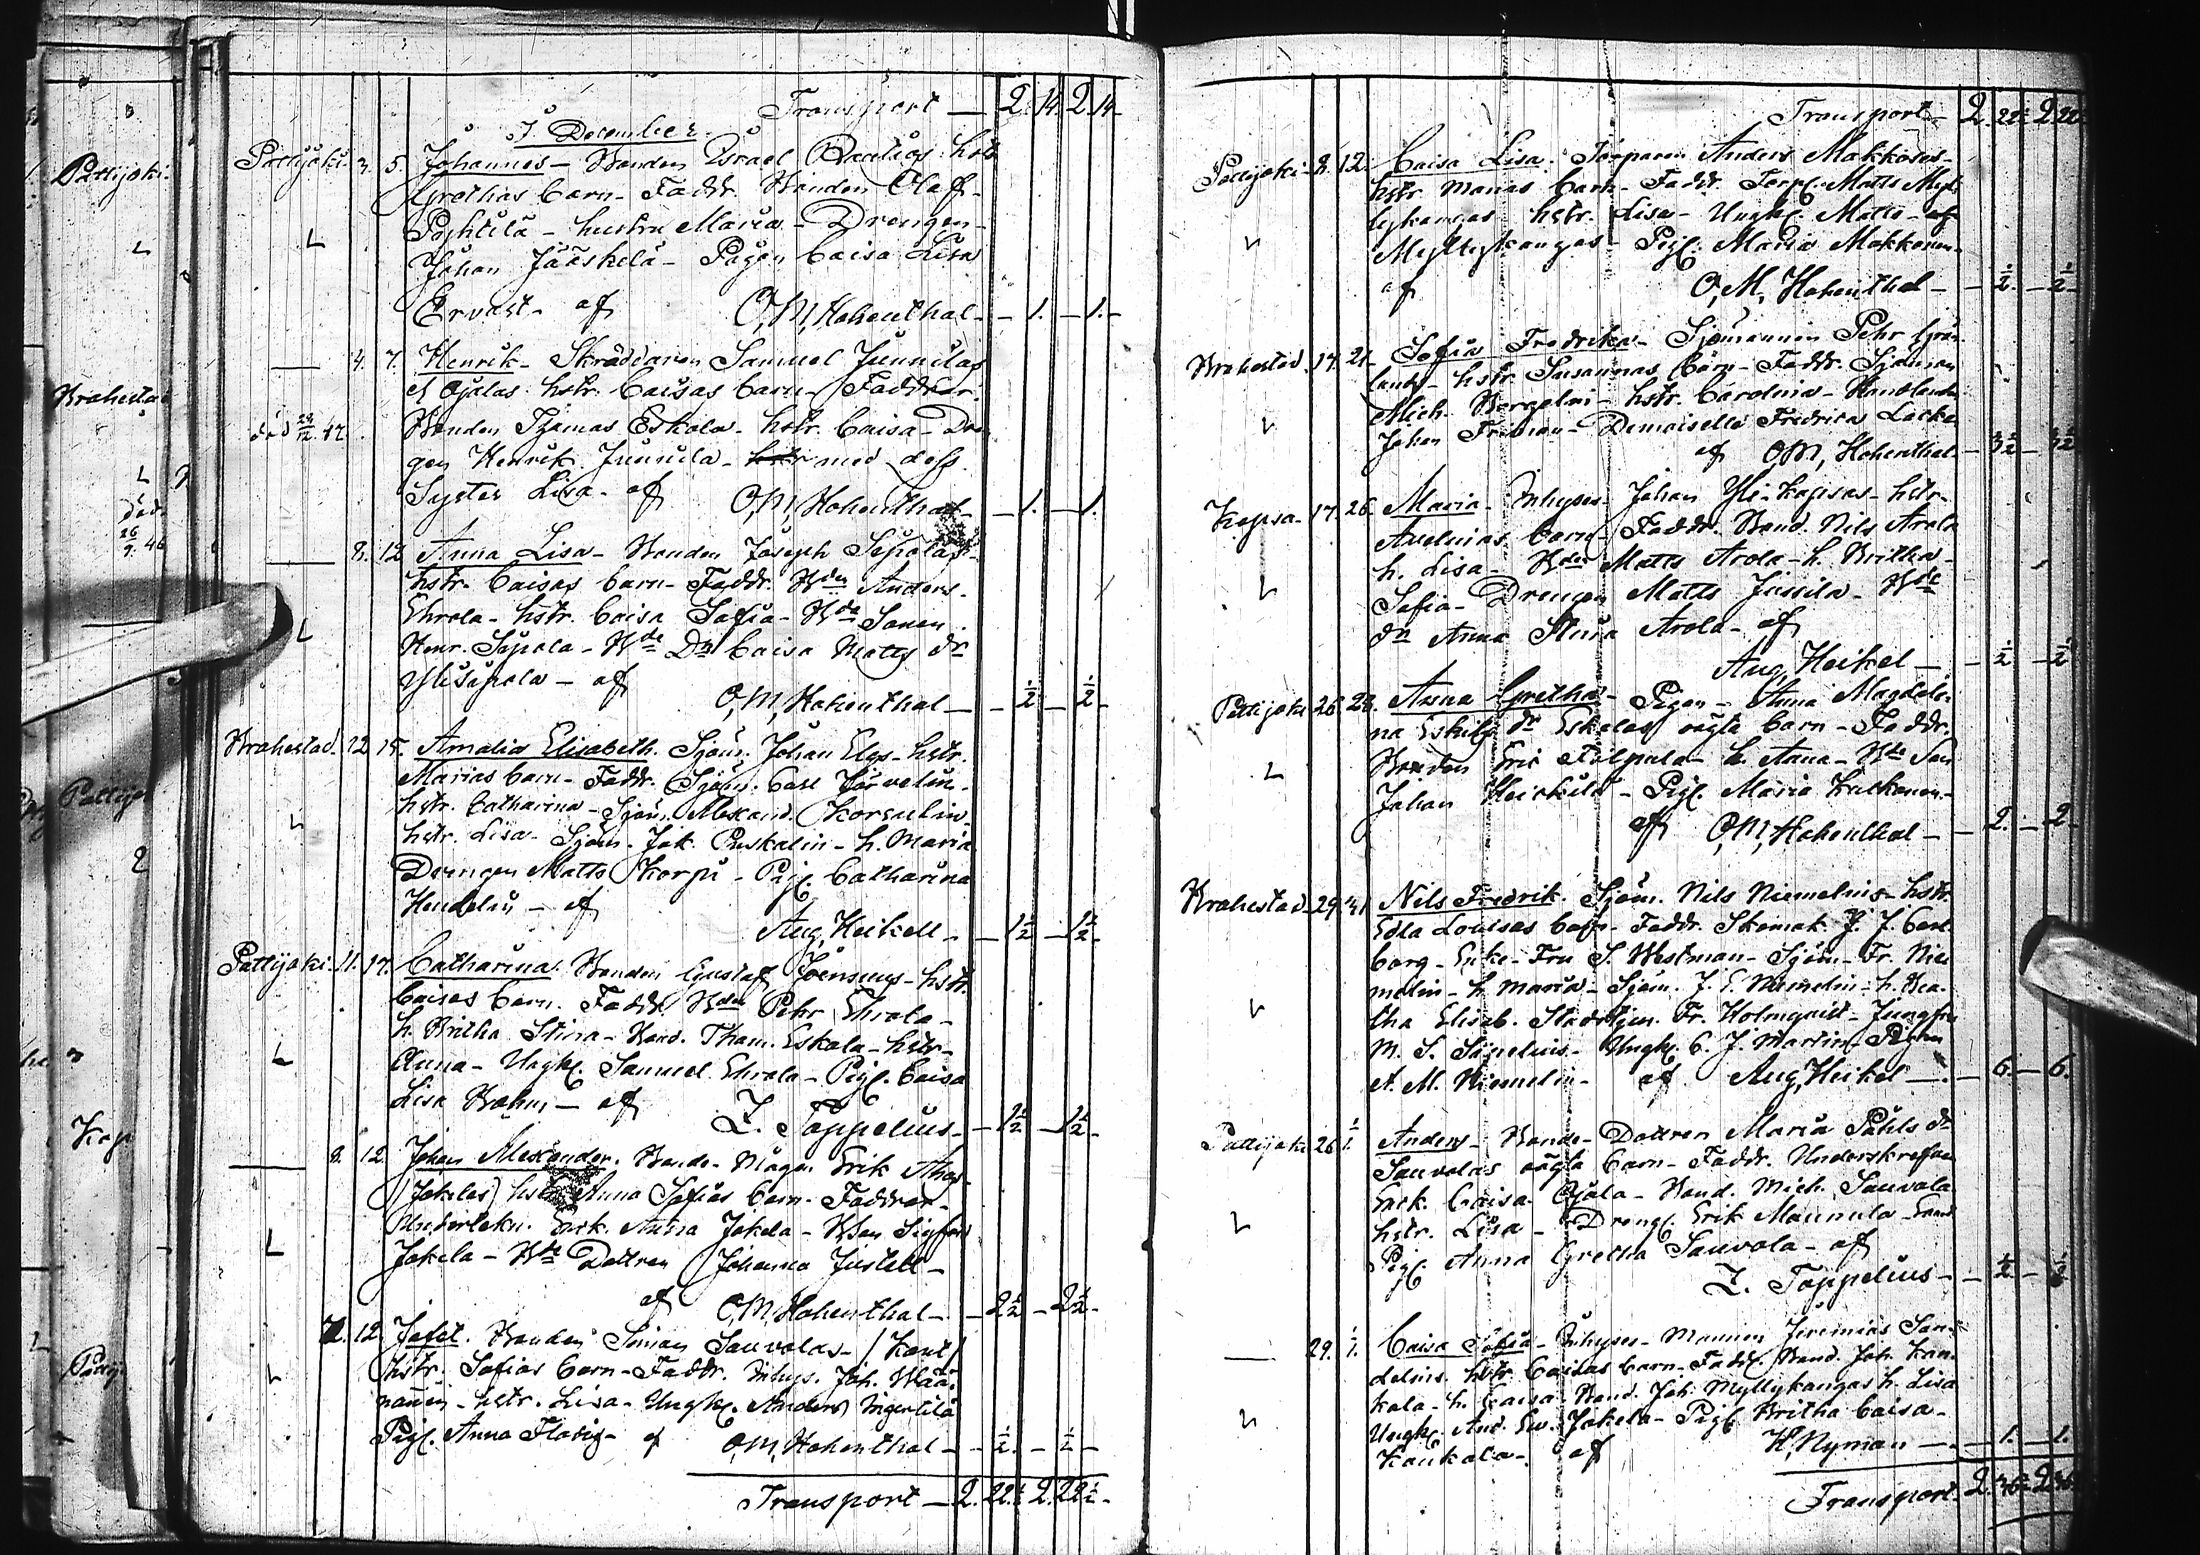 Transport — 2. 14. 2. 14
I December.
Pattijoki. 3. 5. Johannes — Bonden Israel hstr
Grethas barn — Faddr. Bonden Olof
Pehtilä — hustru Maria — Drengen
Johan Jääskelä — Pigan Caisa Lisa
Ervast — af O, M, Hohenthal — 1. — 1. —
4. 7. Henrik — Skräddaren Samuel Junnilas
et Ojalas hstr. Caisas barn — Faddrar.
död 28/12 42. Bonden Thomas Eskola — hstr. Caisa — Dren
gen Henrik Junnila — med dess
Syster Lisa — af O, M, Hohenthal — 1. — 1.
8. 12 Anna Lisa — Bonden Joseph Sipolas
hstr. Caisas barn — Faddr. Bden Anders
Ehrola — hstr. Caisa Sofia — Bde Sonen
Henr. Sipola — Bde Dn Caisa Matts dr
Ylisipola — af
O, M, Hohenthal — ½ — ½ —
Brahestad. 12 15. Amalia Elisabeth. Sjöm. Johan Elgs — hstr.
Marias barn — Faddr. Sjöm. Carl Järvelin —
hstr. Catharina — Sjöm. Alexand. Korsulin
hstr. Lisa — Sjöm. Jak. Puskalin — h. Maria
Drengen Matts Korpi — Pig. Catharina
Hendelin — af
Aug, Heikell — 1½ — 1½ —
Pattijoki. 11. 17. Catharina. Bonden Gustaf Joensuus — hstr.
Caisas barn. Faddr. Bden Pehr Ehrola —
h. Britha Stina — Bond. Thom. Eskola — hstr —
Anna — Ungk. Samuel Ehrola — Pig. Caisa
Lisa Böhm — af
Z. Toppelius — 1½ — 1½ —
8. 12. Johan Alexander. Bonde-Mågen Erik
Jokelas hstr Anna Sofias barn — Faddrar —
Enk. Anna Jokela — BSon Sigfrid
Jokela — Bde Dottren Johanna Justell —
af O, M, Hohenthal — 2½ — 2½ —
12. Jafet. Bonden Simon Sauvolas — / Kant /
hstr. Sofias barn — Faddr. Inhys. Joh. Wää-
nänen — hstr. Lisa — Ungk. Anders Nigertilä
Pig. Anna — af O, M, Hohenthal — ½ — ½ —
Transport — 2. 22½ 2. 22½ —
Transport — 2. 22½ 2. 22½
Pattijoki — 8. 12. Caisa Lisa. Torparen Anders Makkoses —
hstr Marias barn — Faddr. Torp. Matts Myl-
lykangas hstr. Lisa — Ungk. Matts — af
Myllykangas — Pig. Maria Makkonen —
af O, M, Hohenthal — ½ — ½ —
Brahestad. 17. 21. Sofia Fredrika — Sjömannen Pehr Grön-
lunds — hstr Susannas barn — Faddr. Sjöman
Mich. Bergelin — hstr. Carolina — Handlanden
Johan Friman — Demoiselle Fredrica Lacke
af O, M, Hohenthal — 3½ — 3½
Kopsa — 17. 26. Maria — Inhyses — Johan Yli-Kopsas — hstr —
barn — Faddr. Bond. Nils Arola
h. Lisa — Bden Matts Arola — h. Britha —
Sofia — Drengen Matts Jussila — Bde
dn Anna Stina Arola — af
Aug, Heikel — ½ — ½
Pattijoki 26. 28. Anna Gretha — Pigan — Anna Magdale-
na Eskils dr Eskolas oägta barn — Faddr.
Bonden Eric Filpula — h. Anna — Bde Son
Johan Heikkilä — Pig. Maria Kulkonen —
af O, M, Hohenthal — 2. — 2 —
Brahestad 29. 31 Nils Fredrik. Sjöm. Nils Niemelins — hstr.
Edla Lovisas barn — Faddr. Skomak. J. J. Carl-
borg — Enke-Fru S. Westman — Sjöm. Fr. Nie
melin — h. Maria — Sjöm. J. E. Niemelin — h. Bea-
tha Elisab. Fr. Holmqvist — Jungfru
M. S. Sinelius — Ungk. C. J. Martin — Pigan
A. M. Niemelin — af Aug, Heikel — 6. — 6.
Pattijoki 26. 1/1. Anders — Bonde-Dottren Maria Påhls dr
Sauvolas oägta barn — Faddr.
Enk. Caisa Ojala — Bond. Mich. Sauvola
hstr. Lisa — Dreng. Erik Mannula —
Pig. Anna Gretha Sauvola — af
Z. Toppelius — ½ — ½
29. 1/1. Caisa Sofia — Inhyses-Mannen Jeremias San-
delins hstr. Caisas barn — Faddr. Bond. Joh. Kau-
kola — h. Caisa Bond. Joh. Myllykangas h. Lisa
Ungk. And. Jokela — Pig. Britha Caisa —
Kaukola — af K, Nyman — 1. — 1.
Transport — 2. 36½ 2. 36½